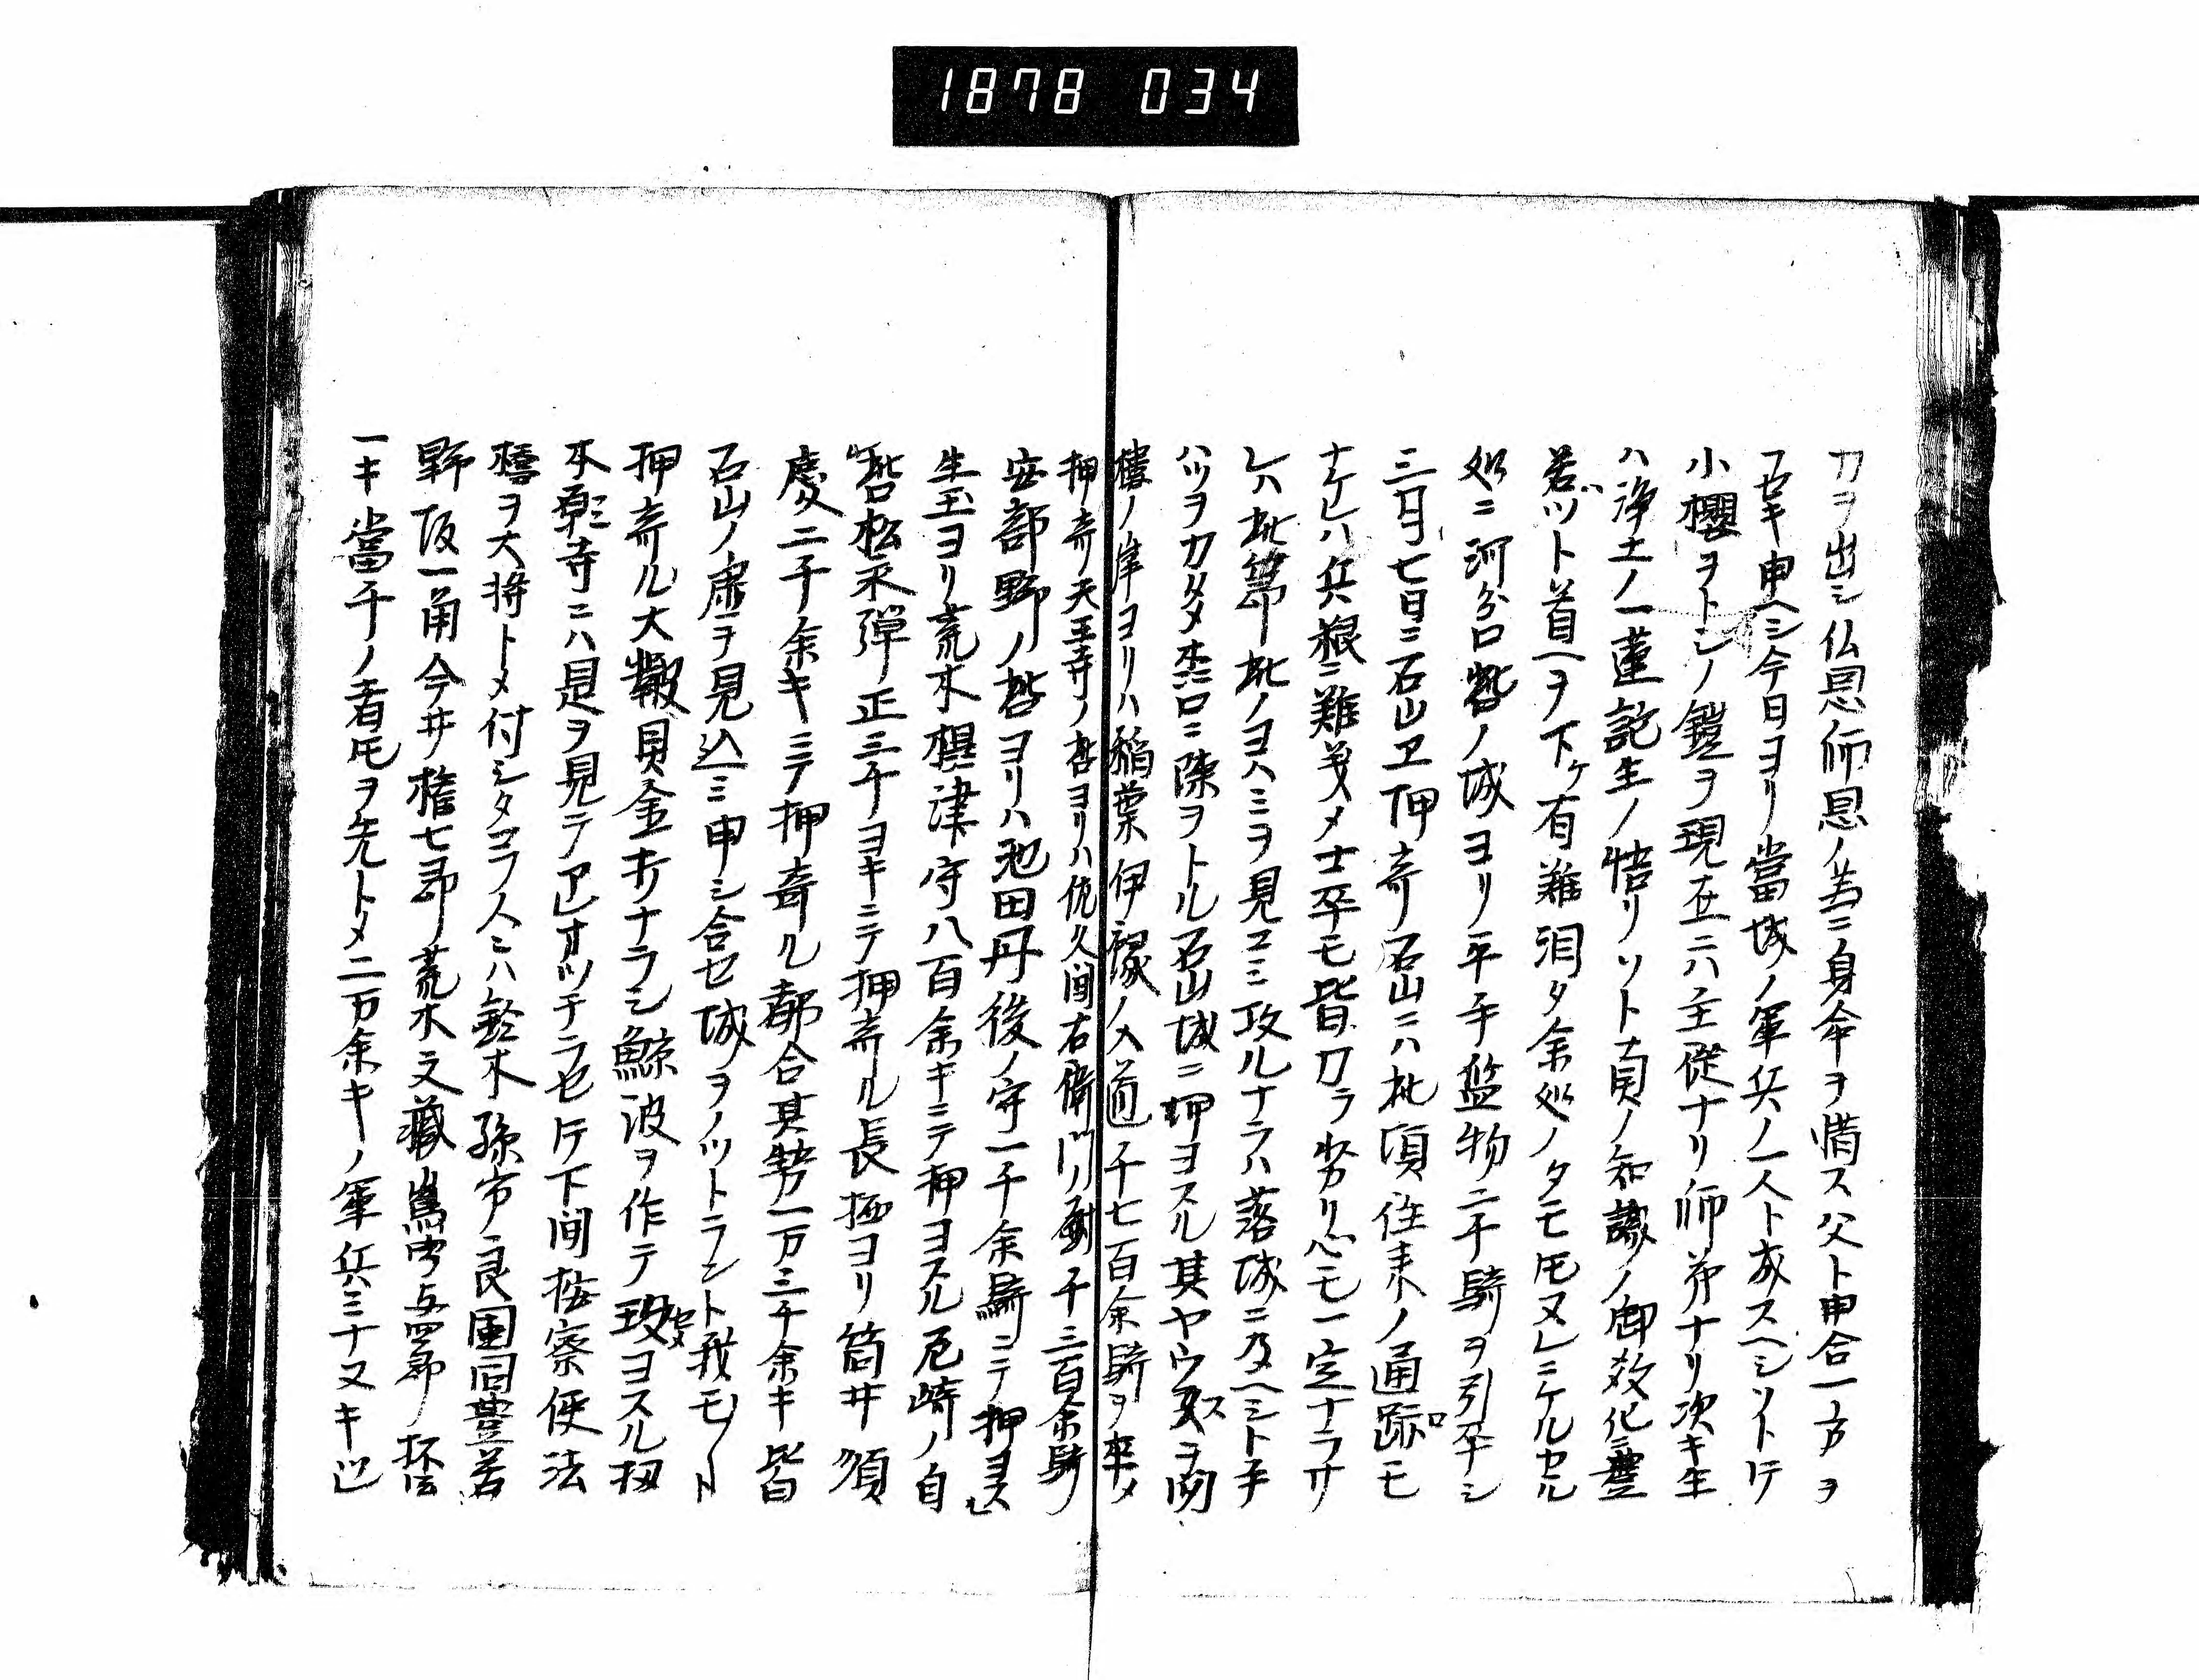 1878 034
力ヲ出シ仏恩師恩ノ為ニ身命ヲ惜ス父ト申合一方ヲ
フセキ申ヘシ今日ヨリ當城ノ軍兵ノ一人ト成スヘシソトテ
小櫻ヲトシノ鎧ヲ現在ニハ主従ナリ師弟ナリ次キ生
ハ浄土ノ一蓮託生ノ悟リソト真ノ知識ノ御教化ニ豊
若ヅト首ヘヲ下ケ有難泪タ余処ノタモ𪜈ヌレニケルカヽル
処ニ河分口砦ノ城ヨリ平手監物二千騎ヲ引卒シ
三月七日ニ石山エ押寄リ石山ニハ此頃往来ノ通路モ
ナケレハ兵粮ニ難義メ士卒モ皆力ラ労リ心モ一定ナラサ
レハ此篇ヤ此ノヨハミヲ見コミ攻ルナラハ落城ニ及ヘシト手
ハツヲカタメ木口ニ陳ヲトル石山城ニ押ヨスル其ヤウスヲ聞
樓ノ岸ヨリハ稲葉伊豫ノ入道千七百余騎ヲ卒メ
押寄リ天王寺ノ砦ヨリハ佐久间右衛门尉千三百余騎
安部野ノ砦ヨリハ池田丹後ノ守一千余騎ニテ押ヨスル
生玉ヨリ荒木摂津守八百余キニテ押ヨスル尼崎ノ自
砦松永弾正三千ヨキニテ押寄ル長極ヨリ筒井順
慶二千余キニテ押寄ル都合其勢一万三千余キ皆
石山ノ虚ヲ見込ミ申シ合セ城ヲノットラント我モ〳〵ト
押寄ル大皷貝金木ナラシ鯨波ヲ作テ攻ヨスル扨
本願寺ニハ是ヲ見テアレオッチラセトテ下间按察使法
橋ヲ大将トメ付シタコフ人ニハ鈴木孫市ノ良圓同豊若
野坂一角今井権七郎荒木文藏嶌与四郎ノ
一キ當千ノ者𪜈ヲ先トメ二万余キノ軍兵三十ヌキ